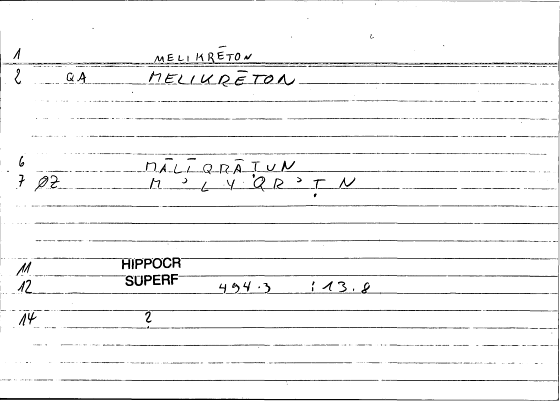 1 MELIKRĒTON
2 QA MELIKRĒTON
6 MĀLĪQRĀṬUN
7 ØZ M ʾ L Y QR ʾ Ṭ N
11 HIPPOCR
12 SUPERF 494.3 :13.8
14 2